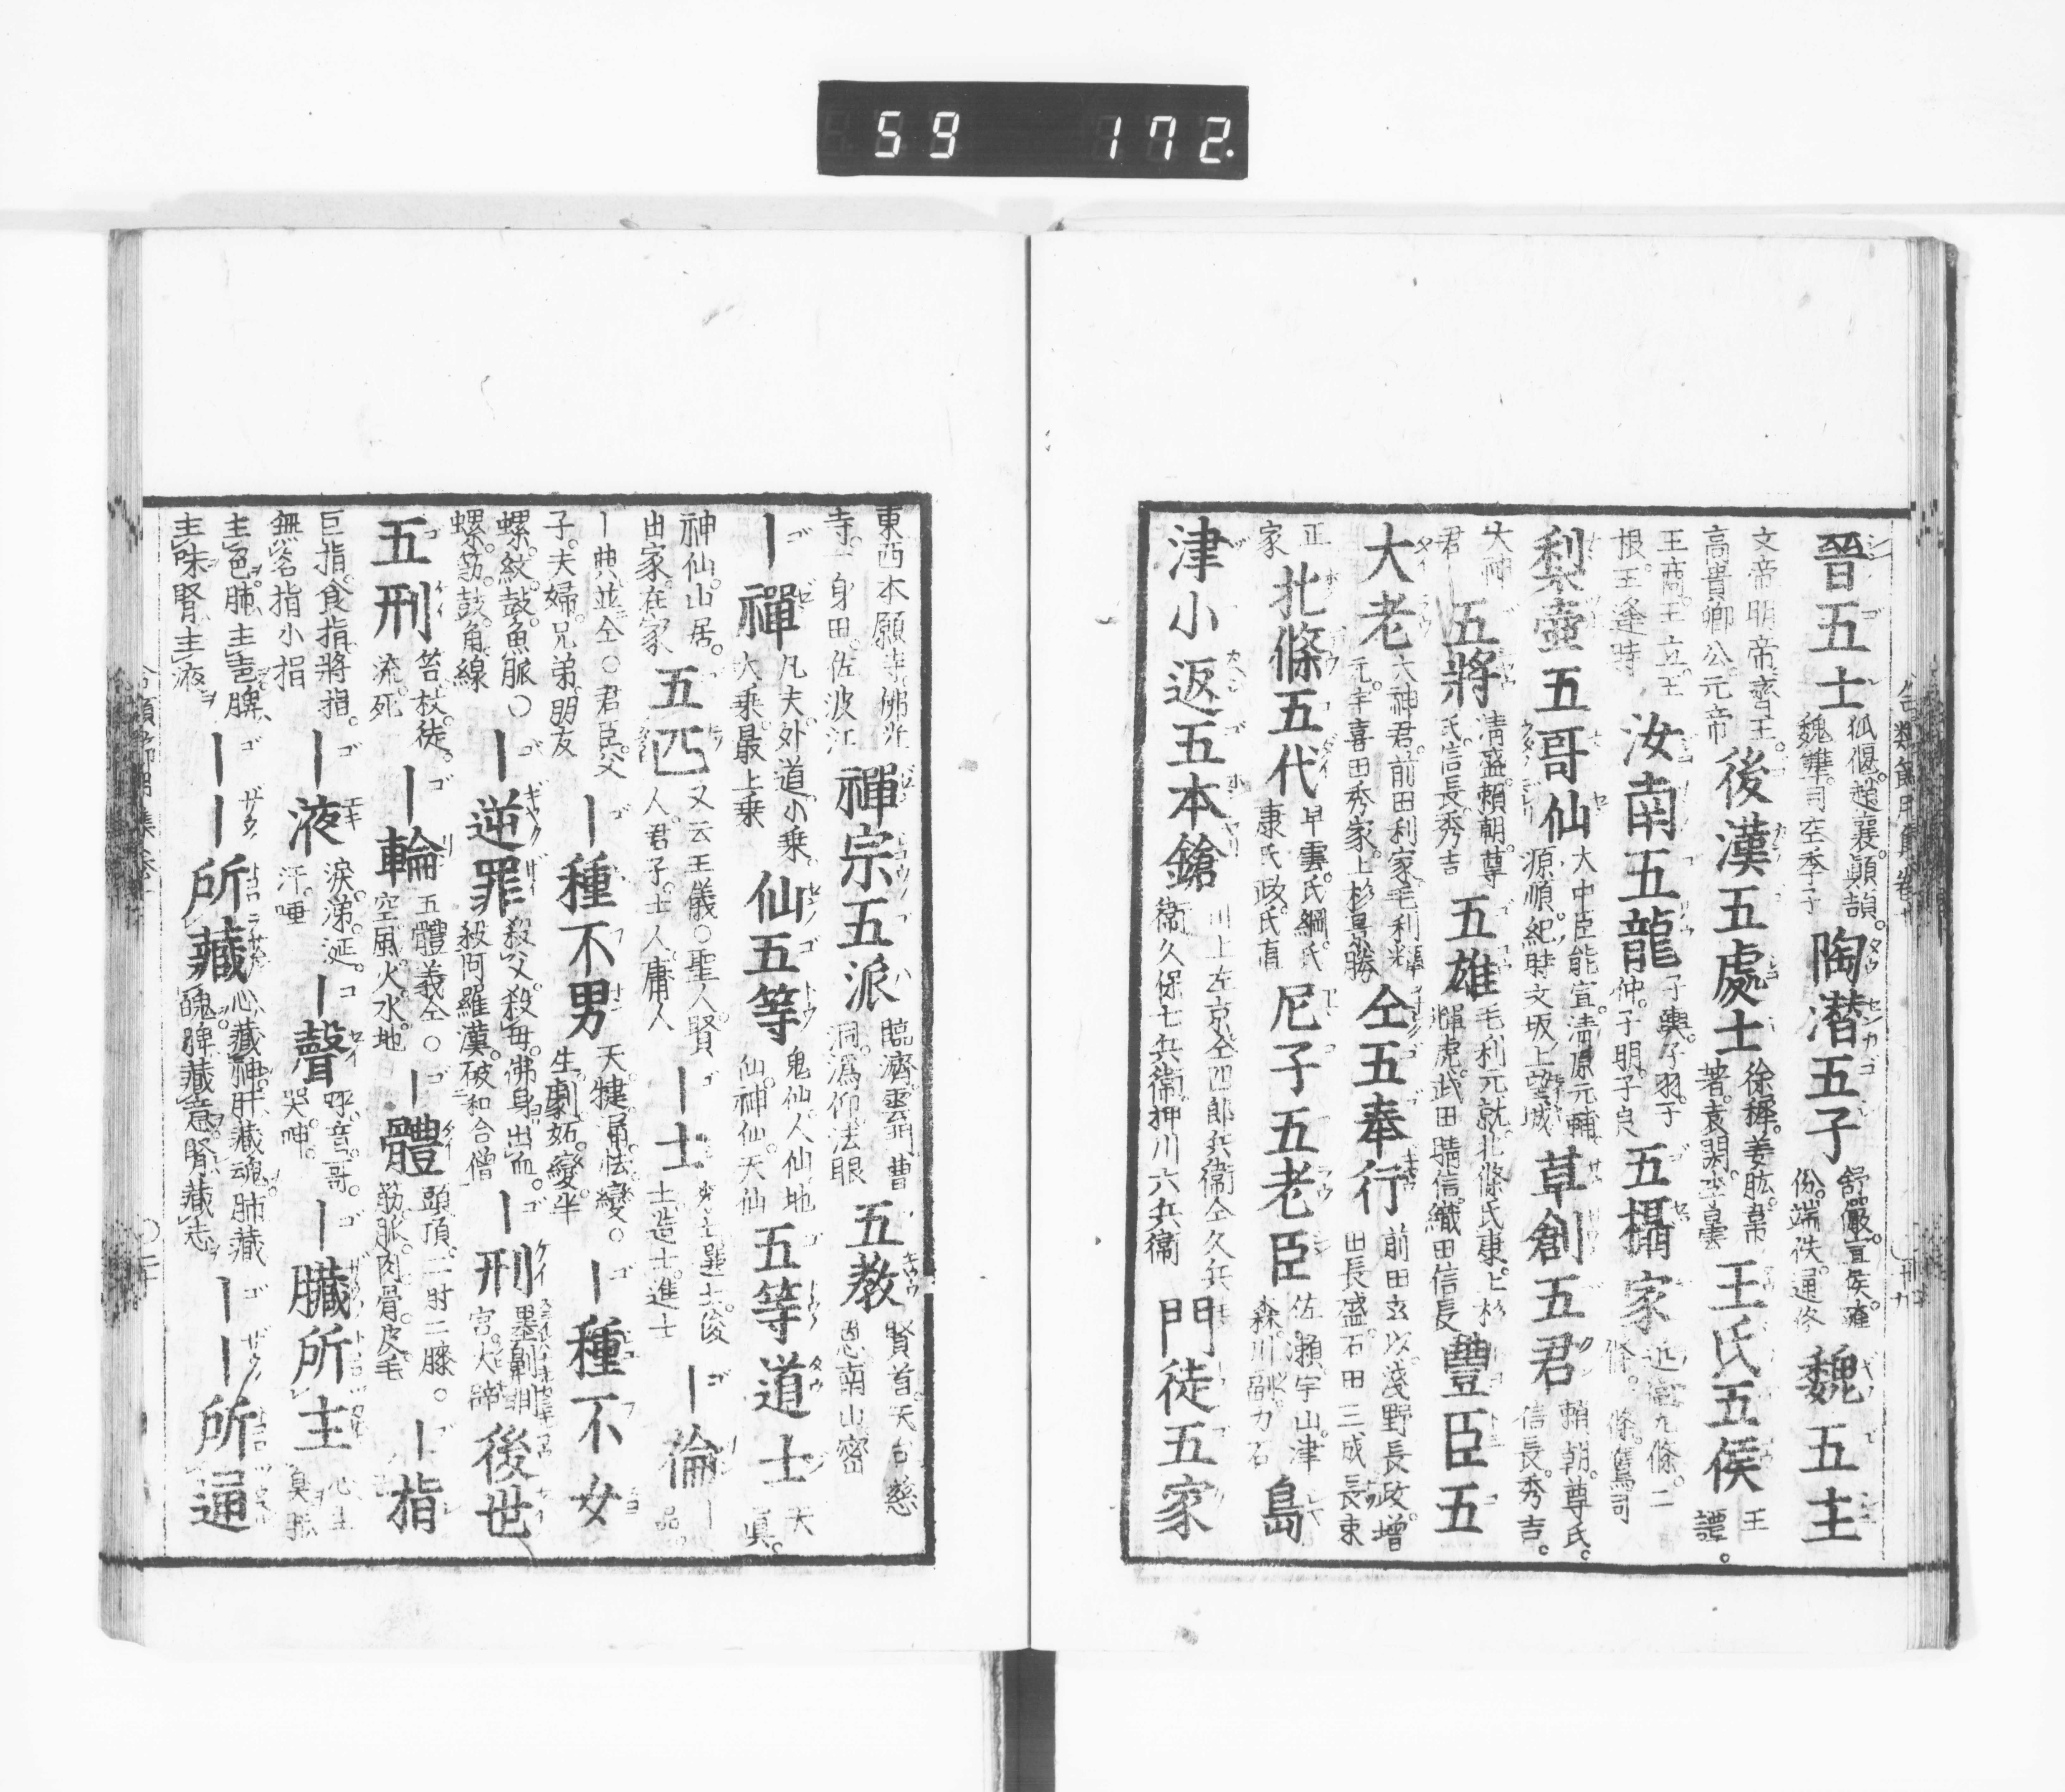 59 172.
晉五士 狐偃。趙襄。顚頡。魏犨。司空季子 陶潜五子 舒儼。宣俟。雍份。端佚。通佟 魏五主
文帝明帝齊王。高貴卿公。元帝 後漢五處士 徐穉。姜肱。韋著。袁閎。李曇 王氏五侯 王譚。
王商。王立。王根。王逢時 汝南五龍 子輿。子羽。子仲。子明。子良 五攝家 近衛九條。二條。一條。鷹司
梨壺五哥仙 大中臣能宣。淸原元輔 源順。紀時文坂上望城 草創五君 賴朝。尊氏。信長。秀吉。
大神君 五將 淸盛。賴朝。尊氏。信長秀吉 五雄 毛利元就。北條氏康。上杉輝虎。武田晴信。織田信長 豐臣五
大老 大神君。前田利家。毛利輝元。宇喜田秀家。上杉景勝 仝五奉行 前田玄以。淺野長政。增田長盛。石田三成長束
正家 北條五代 早雲。氏綱。氏康氏政。氏直 尼子五老臣 佐瀬。宇山。津森。川副力石 島
津小返五本鎗 川上左京仝四郎兵衞仝久兵衞久保七兵衞押川六兵衞 門徒五家
東西本願寺。佛光寺。一身田。佐波江 禪宗五派 臨濟。雲門曹洞。潙仰。法眼 五教 賢首。天台慈恩南山密
｜禪 凡夫。外道小乗。大乗。最上乗 仙五等 鬼仙。人仙地仙。神仙。天仙 五等道士 天眞。
神仙。山居。出家。在家 五匹 又云王儀○聖人。賢人。君子。士人。庸人 ｜士 秀士選士。俊士造士。進士 ｜倫 ｜品。
｜典並仝○君臣。父子。夫婦。兄弟。朋友 ｜種不男 天。犍。涌。怯。變。 ｜種不女
螺。紋。鼓。魚脈○螺。筋。鼓。角線 ｜逆罪 殺父。殺母。佛身出血。殺阿羅漢。破和合僧 ｜刑 墨劓剕宮。大辟 後世
五刑 笞。杖。徒。流。死 ｜輪 五體義仝○空。風。火。水。地 ｜體 頭頂。二肘二膝。○筋。脈。肉骨。皮毛 ｜指
巨指。食指。將指。無名指小指 ｜液 涙。涕。涎。汗。唾 ｜聲 呼。言。哥。哭。呻。 ｜臟所主 心主臭肝
主色。肺主聲脾主味腎主液 ｜｜所藏 心藏神。肝藏魂。肺藏魄。脾藏意。腎藏志 ｜｜所通